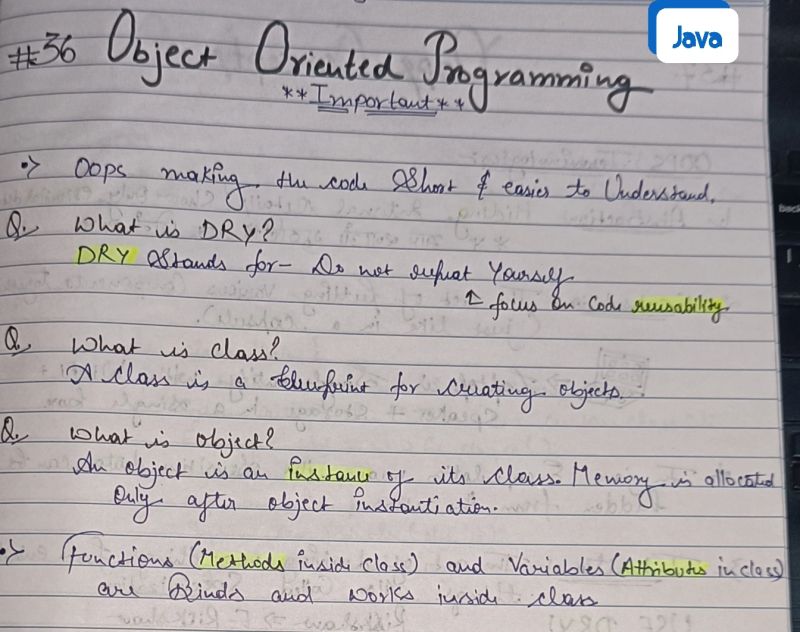 Java
#36 Object Oriented Programming
**Important**
•> OOPS making the code Short & easier to Understand.
Q. What is DRY?
DRY Stands for - Do not repeat Yourself
↑ focus on Code reusability.
Q. What is class?
A Class is a blueprint for creating objects.
Q. What is object?
An object is an instance of its class. Memory is allocated
Only after object instantiation.
•> Functions (Methods inside class) and Variables (Attributes in class)
are Binds and works inside class